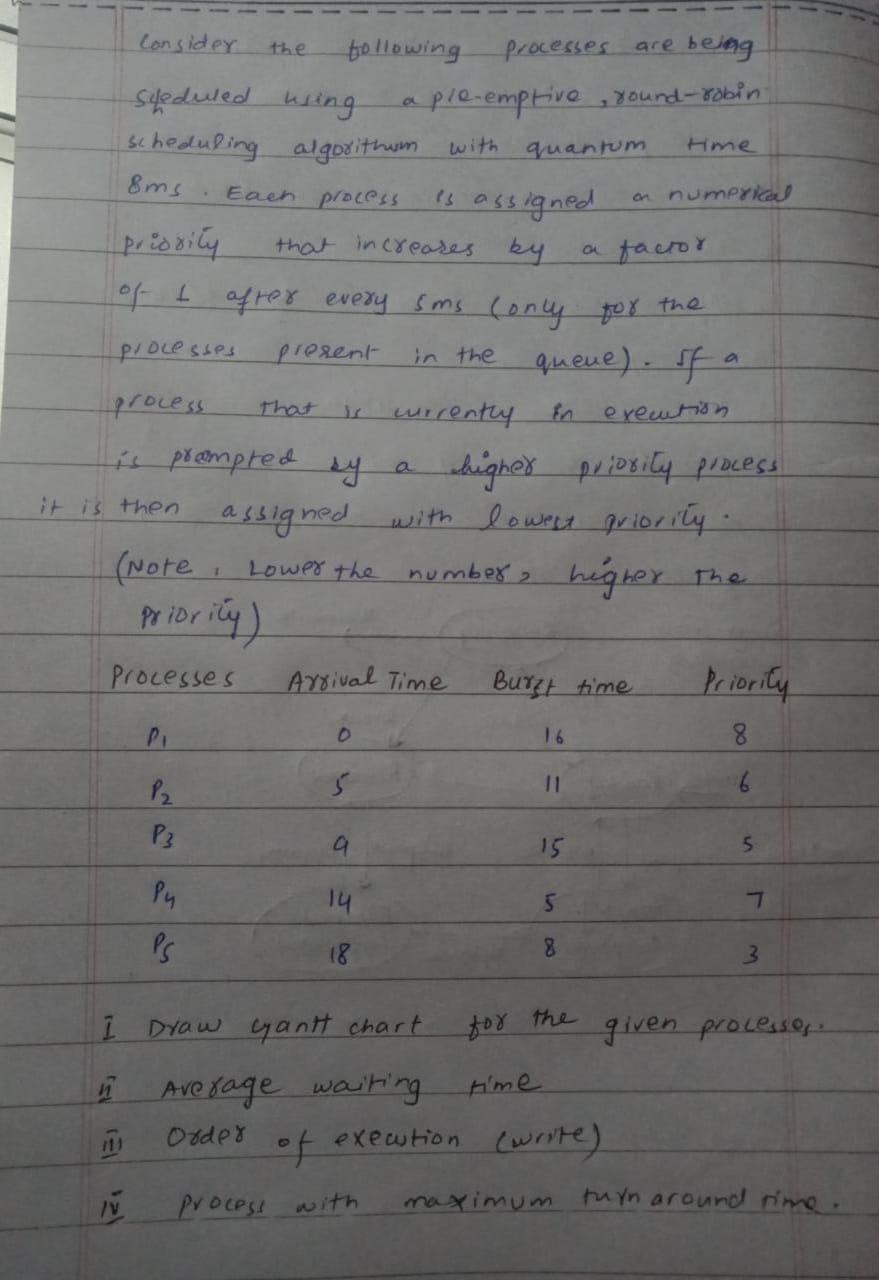 Consider the following processes are being
scheduled using a pre-emptive, round-robin
scheduling algorithum with quantum time
8ms. Each process is assigned an numerical
priority that increases by a factor
of 1 after every 5ms (only for the
processes present in the queue). If a
process that is currently in execution
is prempted by a higher priority process
it is then assigned with lowest priority.
(Note, Lower the number, higher the
priority)
Processes Arrival Time Burst time Priority
P1 0 16 8
P2 5 11 6
P3 9 15 5
P4 14 5 7
P5 18 8 3
I Draw gantt chart for the given processes.
II Average waiting time
III Order of execution (write)
IV process with maximum turn around time.